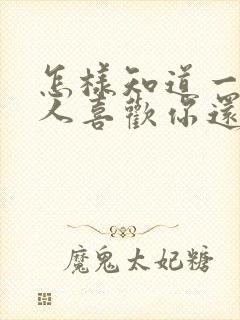 怎樣知道一
人喜歡你還
魔鬼太妃糖